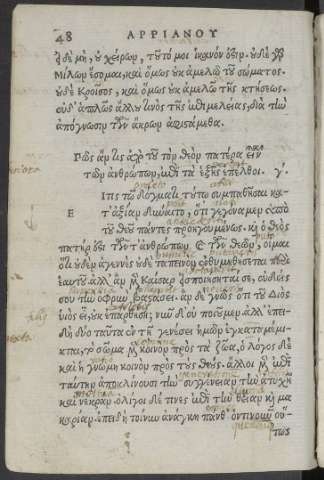 48 ΑΡΡΙΑΝΟΥ
εἰ δὲ μὴ, οὐ χείρων, τοῦτό μοι ἱκανόν ἐστιν. οὐδὲ γὰρ
Μίλων ἔσομαι, καὶ ὅμως οὐκ ἀμελῶ τοῦ σώματος.
οὐδὲ Κροῖσος, καὶ ὅμως οὐκ ἀμελῶ τῆς κτήσεως.
οὐδ' ἁπλῶς ἄλλου τινὸς τῆς ἐπιμελείας, διὰ τὴν
ἀπόγνωσιν τῶν ἄκρων ἀφιστάμεθα.
Πῶς ἄν τις ἀπὸ τοῦ τὸν θεὸν πατέρα εἶναι
τῶν ἀνθρώπων, ἐπὶ τὰ ἑξῆς ἐπέλθοι. γ'.
Εἴ τις τῷ δόγματι τούτῳ συμπαθῆσαι κα-
τ' ἀξίαν δύναιτο, ὅτι γεγόναμεν ὑπὸ
τοῦ θεοῦ πάντες προηγουμένως, καὶ ὁ θεὸς
πατήρ ἐστι τῶν τ' ἀνθρώπων καὶ τῶν θεῶν, οἶμαι
ὅτι οὐδὲν ἀγεννὲς οὐδὲ ταπεινὸν ἐνθυμηθήσεται περὶ
ἑαυτοῦ. ἀλλ' ἂν μὲν Καῖσαρ εἰσποιήσηταί σε, οὐδείς
σου τὴν ὀφρὺν βαστάσει. ἂν δὲ γνῷς ὅτι τοῦ Διὸς
υἱὸς εἶ, οὐκ ἐπαρθήσῃ; νῦν δ' οὐ ποιοῦμεν. ἀλλ' ἐπει-
δὴ δύο ταῦτα ἐν τῇ γενέσει ἡμῶν ἐγκαταμέμι-
κται, τὸ σῶμα μὲν κοινὸν πρὸς τὰ ζῶα, ὁ λόγος δὲ
καὶ ἡ γνώμη κοινὸν πρὸς τοὺς θεούς. ἄλλοι μὲν ἐπὶ
ταύτην ἀποκλίνουσι τὴν συγγένειαν τὴν ἀτυχῆ
καὶ νεκράν. ὀλίγοι δέ τινες ἐπὶ τὴν θείαν καὶ μα-
καρίαν. ἐπειδὴ τοίνυν ἀνάγκη πάνθ' ὁντινοῦν οὕ-
τως